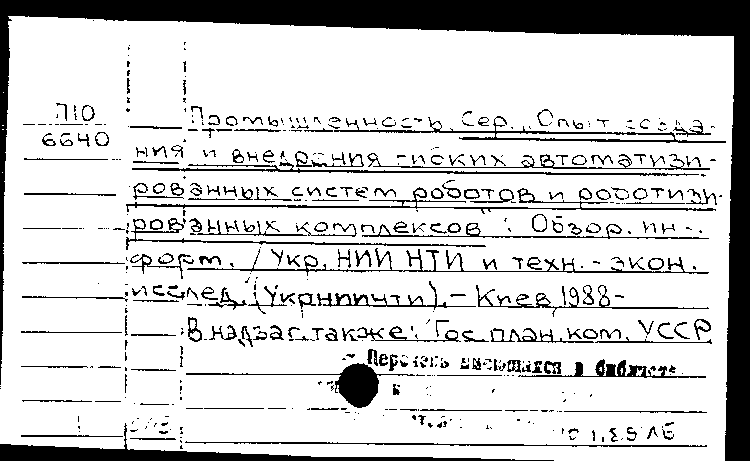 П10
6640
Промышленность. Сер. "Опыт созда-
ния и внедрения гибких автоматизи-
рованных систем, роботов и роботизи-
рованных комплексов": Обзор. ин-
форм. / Укр. НИИ НТИ и техн.-экон.
исслед. (УкрНИИНТИ). - Киев, 1988-
В надзаг. также: Гос. план. ком. УССР
Перечень имеющихся в библиоте